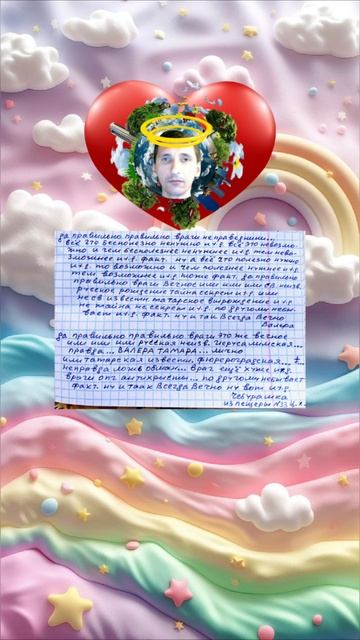 да правильно правильно враги неправедники...
всё это бесполезно ненужно и т.д. всё это невозмо-
жно и чем бесполезнее ненужнее и т.д. тем нево-
зможнее и т.д. факт. ну а всё это полезно нужно
и т.д. то возможно и чем полезнее нужнее и т.д.
тем возможнее и т.д. тоже факт. да правильно
правильно враги Вечное или или или св. неизв.
русское рождение тайна секрет и т.д. или
не св известн. татарское вырождение и т.д.
не тайна не секрет и т.д. по другому небы-
вает и т.д. факт. ну и так Всегда Вечно
Валера
да правильно правильно враги это же вечное
или или или русская неизв. Иерусалимская...
правда... ВАЛЕРА ТАМАРА... или но
или татарская известн. флорографская...
неправда ложь обман... враг ещё хуже итд.
враги от антихристы... по другому небывает
факт. ну и так Всегда Вечно ну вот и т.д.
Чебурашка
из пещеры №33 ц.к.